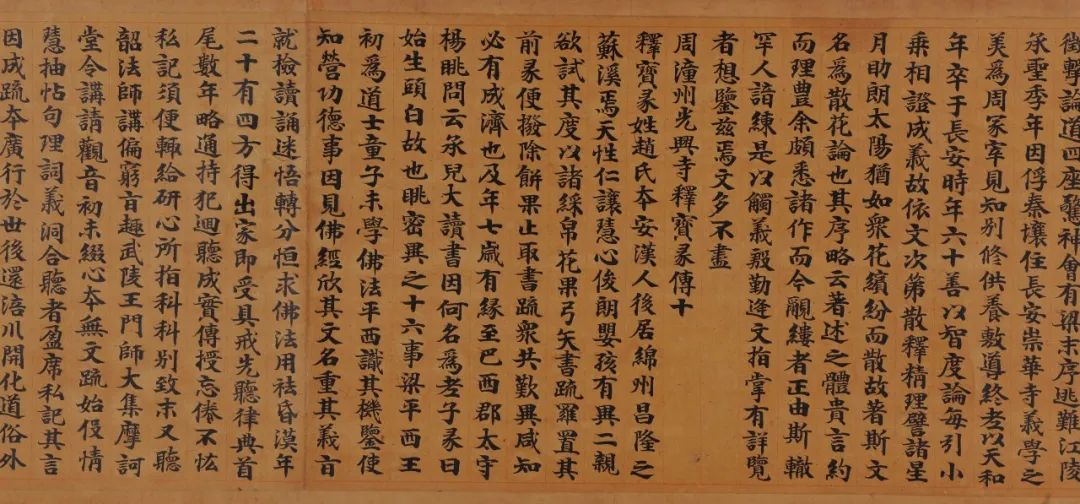 徵擊論道四座驚神會有梁末序逃難江陵
承聖季年因俘秦壤住長安崇華寺義學之
美為周冢宰見知別修供養敷導終老以天和
年卒于長安時年六十善以智度論每引小
乘相證成義故依文次第散釋精理譬諸星
月助朗太陽猶如衆花繽紛而散故著斯文
名為散花論也其序略云著述之體貴言約
而理豊余頗悉諸作而今覼縷者正由斯轍
罕人諳練是以觸義殷勤逢文指掌有詳覽
者想鑒茲焉文多不盡
周潼州光興寺釋寶彖傳十
釋寶彖姓趙氏本安漢人後居綿州昌隆之
蘇溪焉天性仁讓慧心俊朗嬰孩有異二親
欲試其度以諸綵帛花果弓矢書疏羅置其
前彖便撥除餅果止取書疏衆共歎異咸知
必有成濟也及年七歲有緣至巴西郡太守
楊眺問云承兒大讀書因何名為老子彖曰
始生頭白故也眺密異之十六事梁平西王
初為道士童子未學佛法平西識其機鑒使
知營功德事因見佛經欣其文名重其義旨
就檢讀誦迷悟轉分恒求佛法用祛昏漠年
二十有四方得出家即受具戒先聽律典首
尾數年略通持犯迴聽成實傳授忘倦不恡
私記須便輒給研心所指科科別致末又聽
韶法師講偏窮旨趣武陵王門師大集摩訶
堂令講請觀音初未綴心本無文疏始役情
慧抽帖句理詞義洞合聽者盈席私記其言
因成疏本廣行於世後還涪川開化道俗外